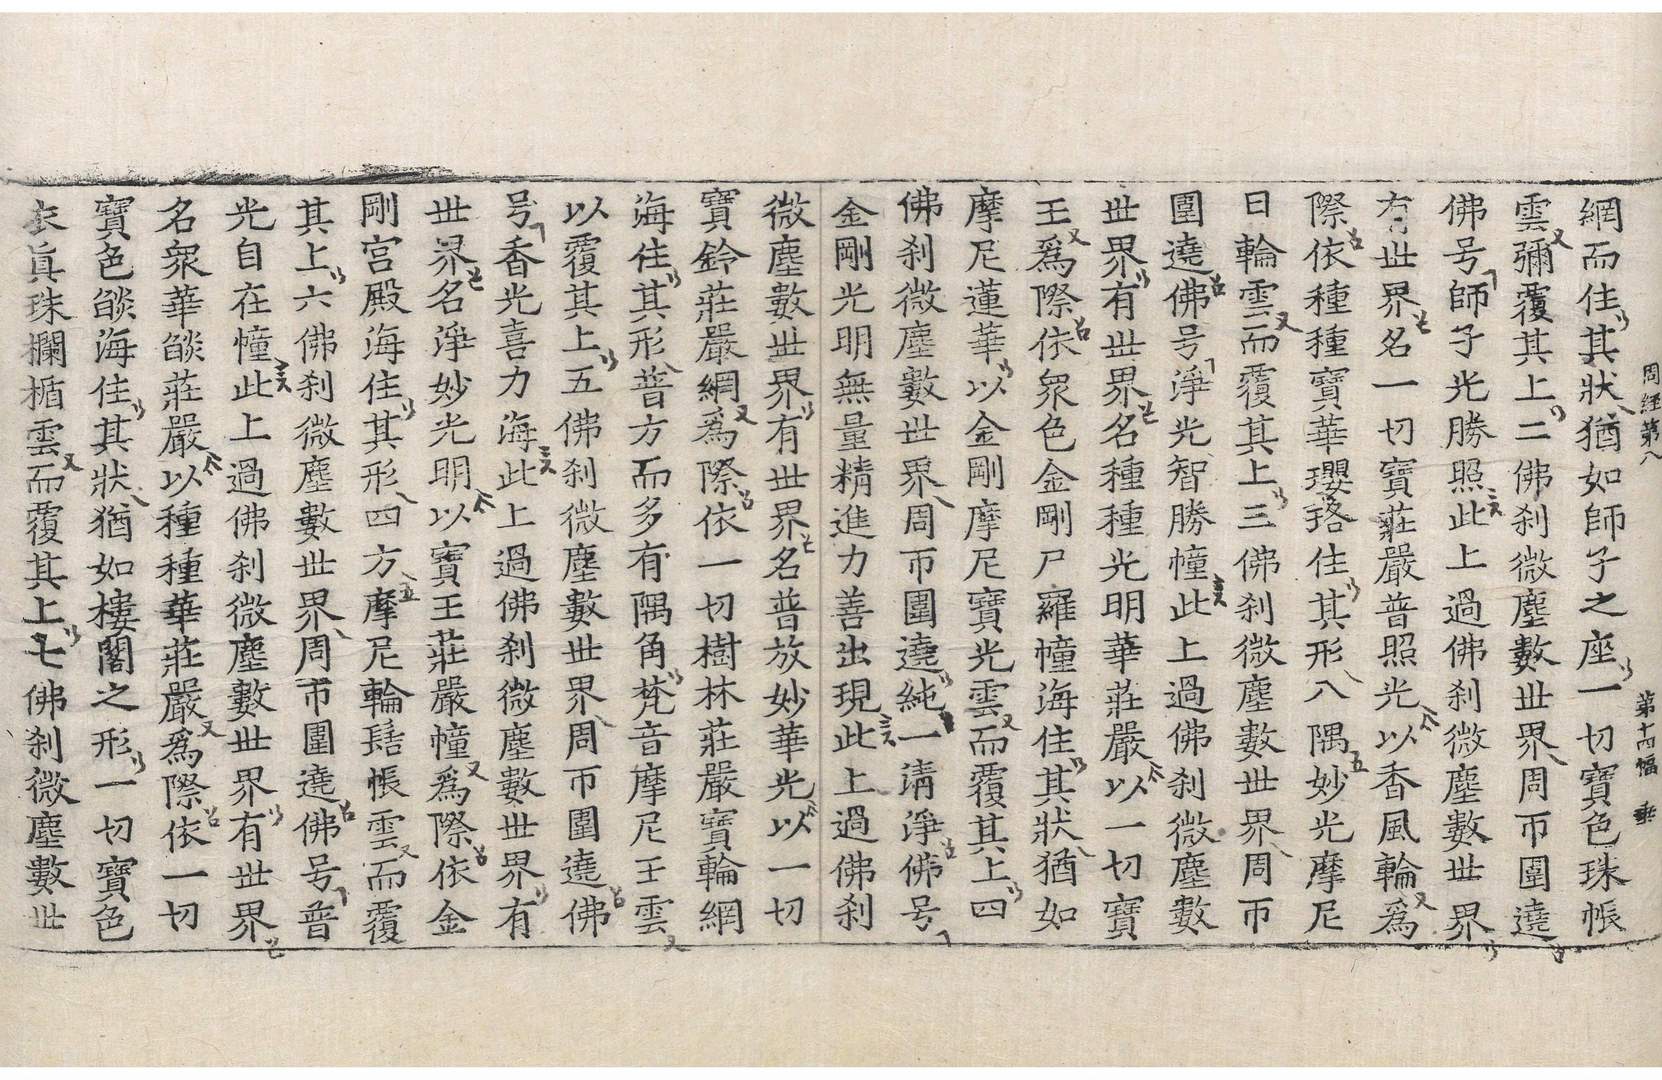 周経第八 第十四幅 垂
網而住其狀猶如師子之座一切寶色珠帳
雲彌覆其上二佛刹微塵數世界周帀圍遶
佛号師子光勝照此上過佛刹微塵數世界
有世界名一切寶莊嚴普照光以香風輪爲
際依種種寶華瓔珞住其形八隅妙光摩尼
日輪雲而覆其上三佛刹微塵數世界周帀
圍遶佛号淨光智勝幢此上過佛刹微塵數
世界有世界名種種光明華莊嚴以一切寶
王爲際依衆色金剛尸羅幢海住其狀猶如
摩尼蓮華以金剛摩尼寶光雲而覆其上四
佛刹微塵數世界周帀圍遶純一清淨佛号
金剛光明無量精進力善出現此上過佛刹
微塵數世界有世界名普放妙華光以一切
寶鈴莊嚴網爲際依一切樹林莊嚴寶輪網
海住其形普方而多有隅角梵音摩尼王雲
以覆其上五佛刹微塵數世界周帀圍遶佛
号香光喜力海此上過佛刹微塵數世界有
世界名淨妙光明以寶王莊嚴幢爲際依金
剛宮殿海住其形四方摩尼輪髻帳雲而覆
其上六佛刹微塵數世界周帀圍遶佛号普
光自在幢此上過佛刹微塵數世界有世界
名衆華焰莊嚴以種種華莊嚴爲際依一切
寶色焰海住其狀猶如樓閣之形一切寶色
衣眞珠欄楯雲而覆其上七佛刹微塵數世